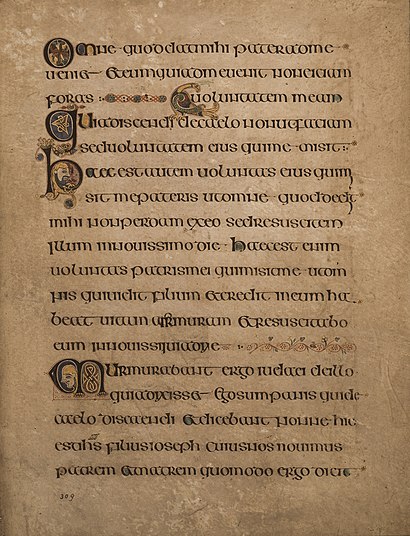 Omne quod dat mihi pater ad me
veniet et eum qui ad me venit non eiciam
foras
voluntatem meam
Quia discendi de caelo non ut faciam
sed voluntatem eius qui me misit
Haec est autem voluntas eius qui
sit me patris ut omne quod dedit
mihi non perdam ex eo sed resuscitem
illum in novissimo die Haec est enim
voluntas patris mei qui misit me ut om
nis qui vidit filium et credit in eum ha
beat vitam aeternam et resuscitabo
eum in novissimo die
Murmurabant ergo iudaei de illo
quia dixisset Ego sum panis qui de
caelo discendi et dicebant nonne hic
est filius ioseph cuius nos novimus
patrem et matrem quomodo ergo dicit
309